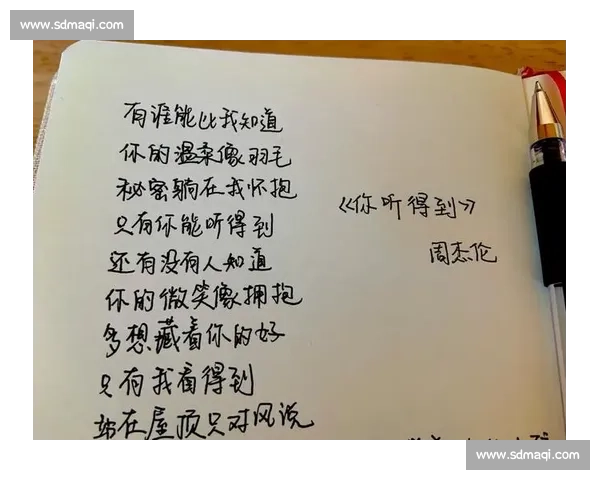 www.sdmaqi.com
有谁能比我知道
你的温柔像羽毛
秘密躺在我怀抱
只有你能听得到
还有没有人知道
你的微笑像拥抱
多想藏着你的好
只有我看得到
站在屋顶只对风说
《你听得到》
周杰伦
www.sdmaqi.com